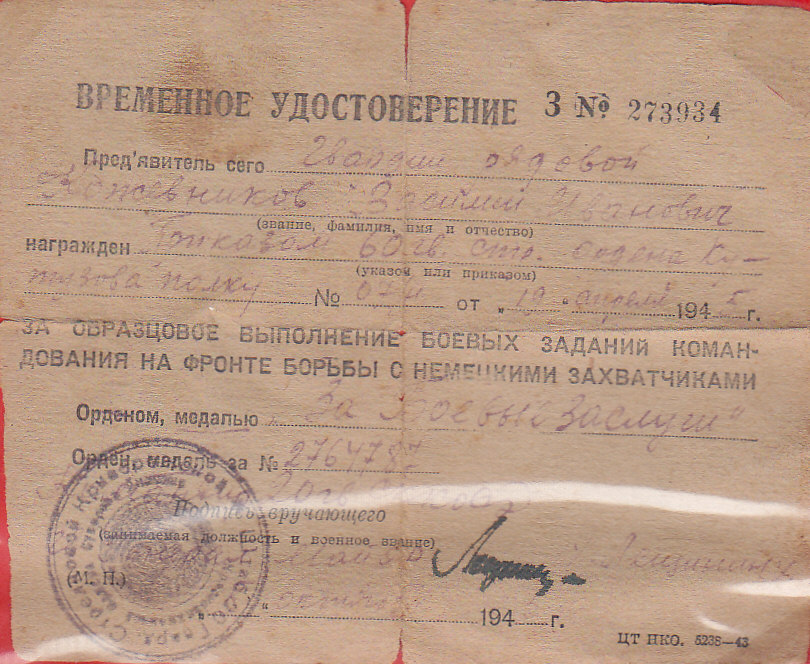 ВРЕМЕННОЕ УДОСТОВЕРЕНИЕ З № 273934
Пред'явитель сего Гвардии рядовой
Кожевников Василий Иванович
(звание, фамилия, имя и отчество)
награжден Приказом 60 гв. стр. ордена Ку-
(указом или приказом)
тузова полку № 07/н от „19“ апреля 1945 г.
ЗА ОБРАЗЦОВОЕ ВЫПОЛНЕНИЕ БОЕВЫХ ЗАДАНИЙ КОМАН-
ДОВАНИЯ НА ФРОНТЕ БОРЬБЫ С НЕМЕЦКИМИ ЗАХВАТЧИКАМИ
Орденом, медалью „За Боевые Заслуги“
Орден, медаль за № 2764787
Подпись вручающего
(занимаемая должность и военное звание)
майор
(М. П.)
194 г.
ЦТ НКО. 5238—43